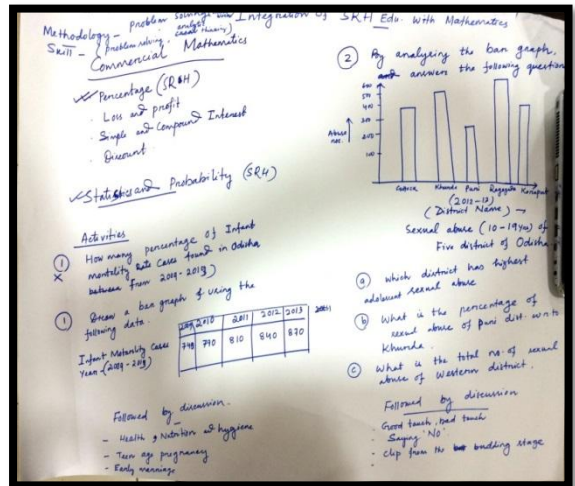 Methodology - problem solving
Integration of SRH Edu. With Mathematics
Skill - (problem solving,
Commercial Mathematics
Percentage (SRH)
. Loss and profit
. Simple and Compound Interest
. Discount
Statistics and Probability (SRH)
Activities
① How many percentage of Infant
X mortality Rate Cases found in Odisha
between from 2009-2013)
① Draw a bar graph of using the
following data.
2009 2010 2011 2012 2013
Infant Matorality Cases 740 790 810 840 870
Year-(2009-2013)
Followed by discussion.
- Health, Nutrition and hygiene
- Teen age pregnancy
- Early marriage
② By analysing the bar graph,
answers the following question
600
500
400
300
200
100
Abuse
no.
Khurda Puri
(2012-13)
(District Name) →
Sexual abuse (10-19 yrs) of
Five district of Odisha
ⓐ Which district has highest
adolescent sexual abuse
ⓑ What is the percentage of
sexual abuse of puri dist. w.r. to
Khurda.
ⓒ What is the total no. of sexual
abuse of Western district.
Followed by discussion
- Good touch, bad touch
- Saying 'No'
- clip from the budding stage